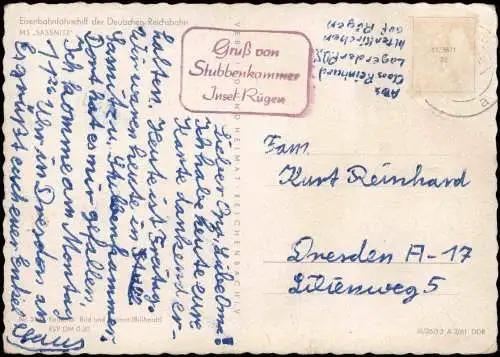 Eisenbahnfährschiff der Deutschen Reichsbahn
MS „SASSNITZ"
Gruß von
Stubbenkammer
Insel Rügen
Abs.
Claus Reinhard
Lagerder
Altenkirchen
auf Rügen
Lieber Opa,
Ich habe heute eure
Karte dankend er-
halten. Heute ist Freitag.
Wir waren heute in
Sassnitz. Stubbenkammer.
Dort hat es mir gefallen.
Ich komme am Montag
Uhr in Dresden an
Es grüßt euch euer Enkel
Claus
Fam.
Kurt Reinhard
Dresden A-17
Lilienweg 5
VERLAG HEIMAT REICHENBACH
Bild und
EVP DM 0,20
A 2/61 DDR